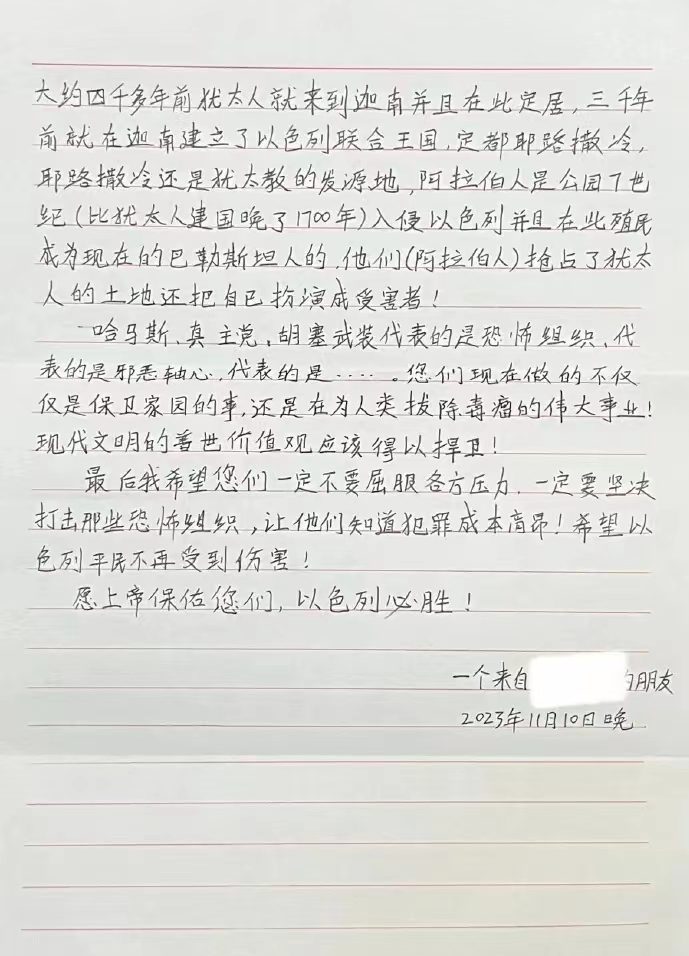 大约四千多年前犹太人就来到迦南并且在此定居，三千年
前就在迦南建立了以色列联合王国，定都耶路撒冷，
耶路撒冷还是犹太教的发源地，阿拉伯人是公园7世
纪（比犹太人建国晚了1700年）入侵以色列并且在此殖民
成为现在的巴勒斯坦人的，他们（阿拉伯人）抢占了犹太
人的土地还把自己扮演成受害者！
哈马斯、真主党、胡塞武装代表的是恐怖组织、代
表的是邪恶轴心，代表的是……。您们现在做的不仅
仅是保卫家园的事，还是在为人类拔除毒瘤的伟大事业！
现代文明的普世价值观应该得以捍卫！
最后我希望您们一定不要屈服各方压力，一定要坚决
打击那些恐怖组织，让他们知道犯罪成本高昂！希望以
色列平民不再受到伤害！
愿上帝保佑您们，以色列必胜！
一个来自 的朋友
2023年11月10日晚